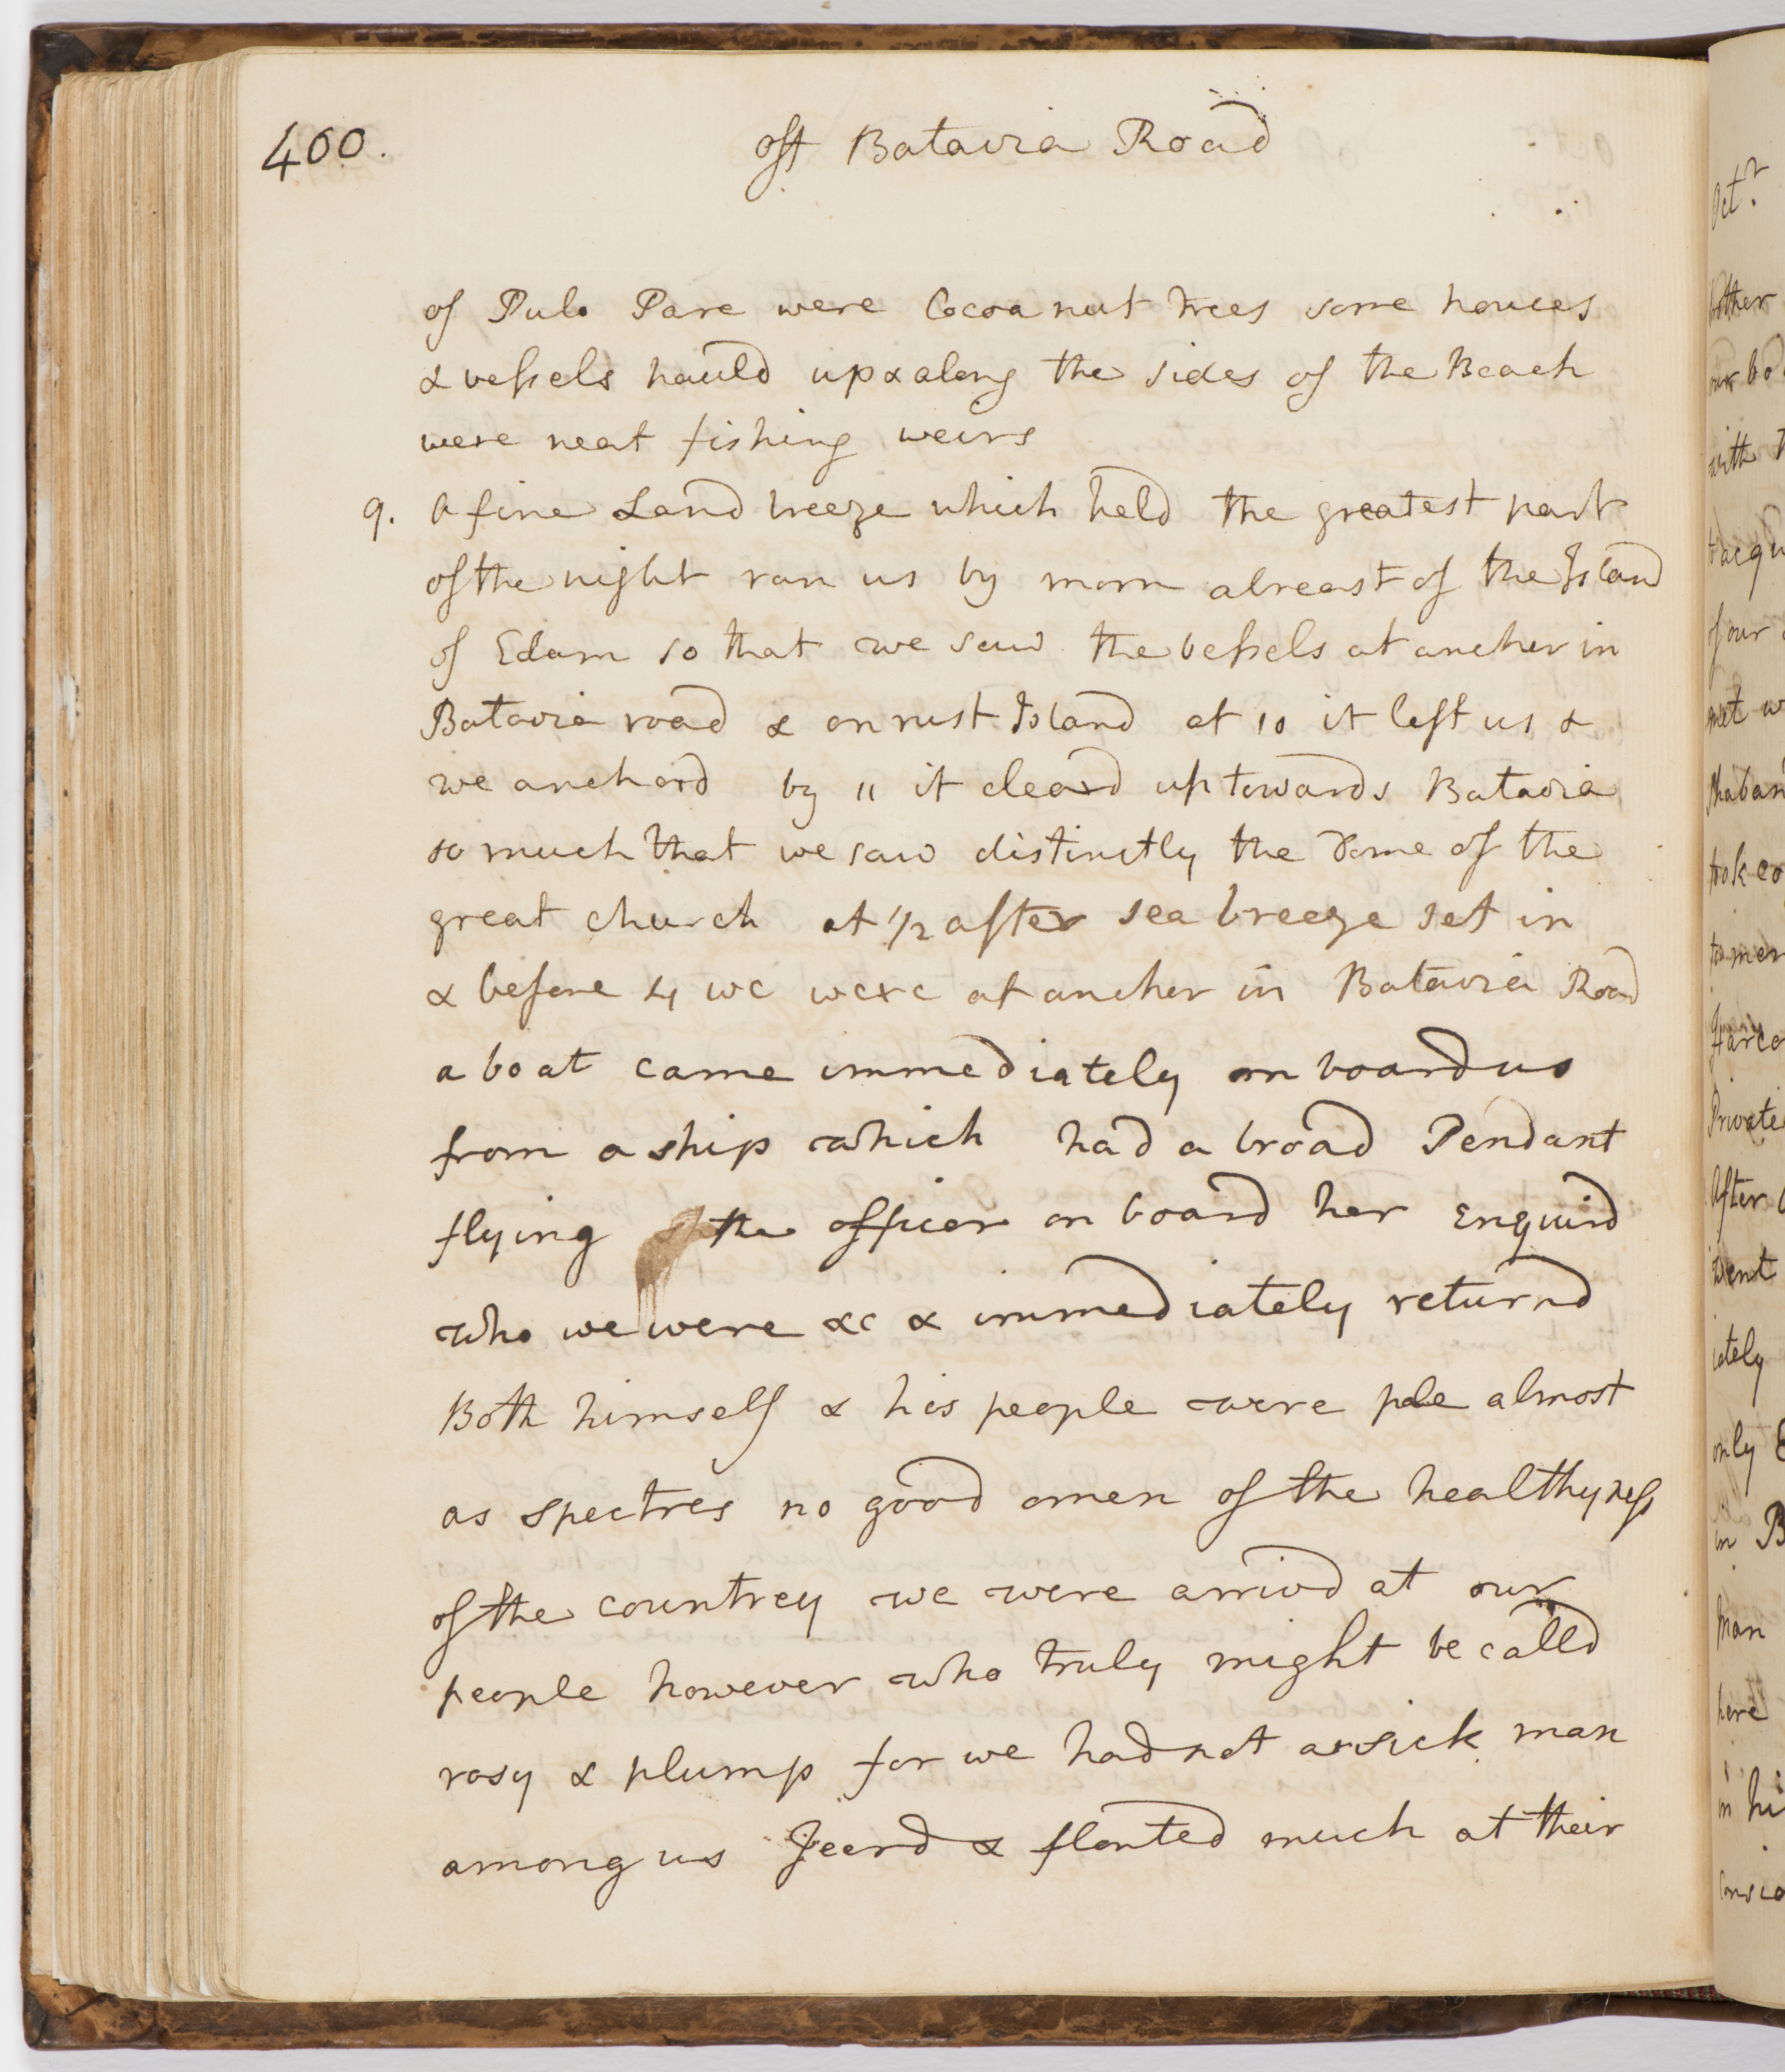 400.
off Batavia Road
of Pulo Pare were Cocoa nut trees some houses
& vessels hauld up & along the sides of the Beach
were neat fishing weirs
9. A fine Land breeze which held the greatest part
of the night ran us by morn abreast of the Island
of Edam so that we saw the vessels at ancher in
Batavia road & onrust Island at 10 it left us &
we anchord by 11 it cleard up towards Batavia
so much that we saw distinctly the Dome of the
great church at 1/2 after sea breeze set in
& before 4 we were at ancher in Batavia Road
a boat came immediately on board us
from a ship which had a broad Pendant
flying the officer on board her Enquird
who we were &c & immediately returnd
Both himself & his people were pale almost
as spectres no good omen of the healthyness
of the countrey we were arrivd at our
people however who truly might be calld
rosy & plump for we had not a sick man
among us Jeerd & flonted much at their
Octr
brother
our bo
with
of our
met w
took co
Private
After
went
iately
only
in B
man
here
in hi